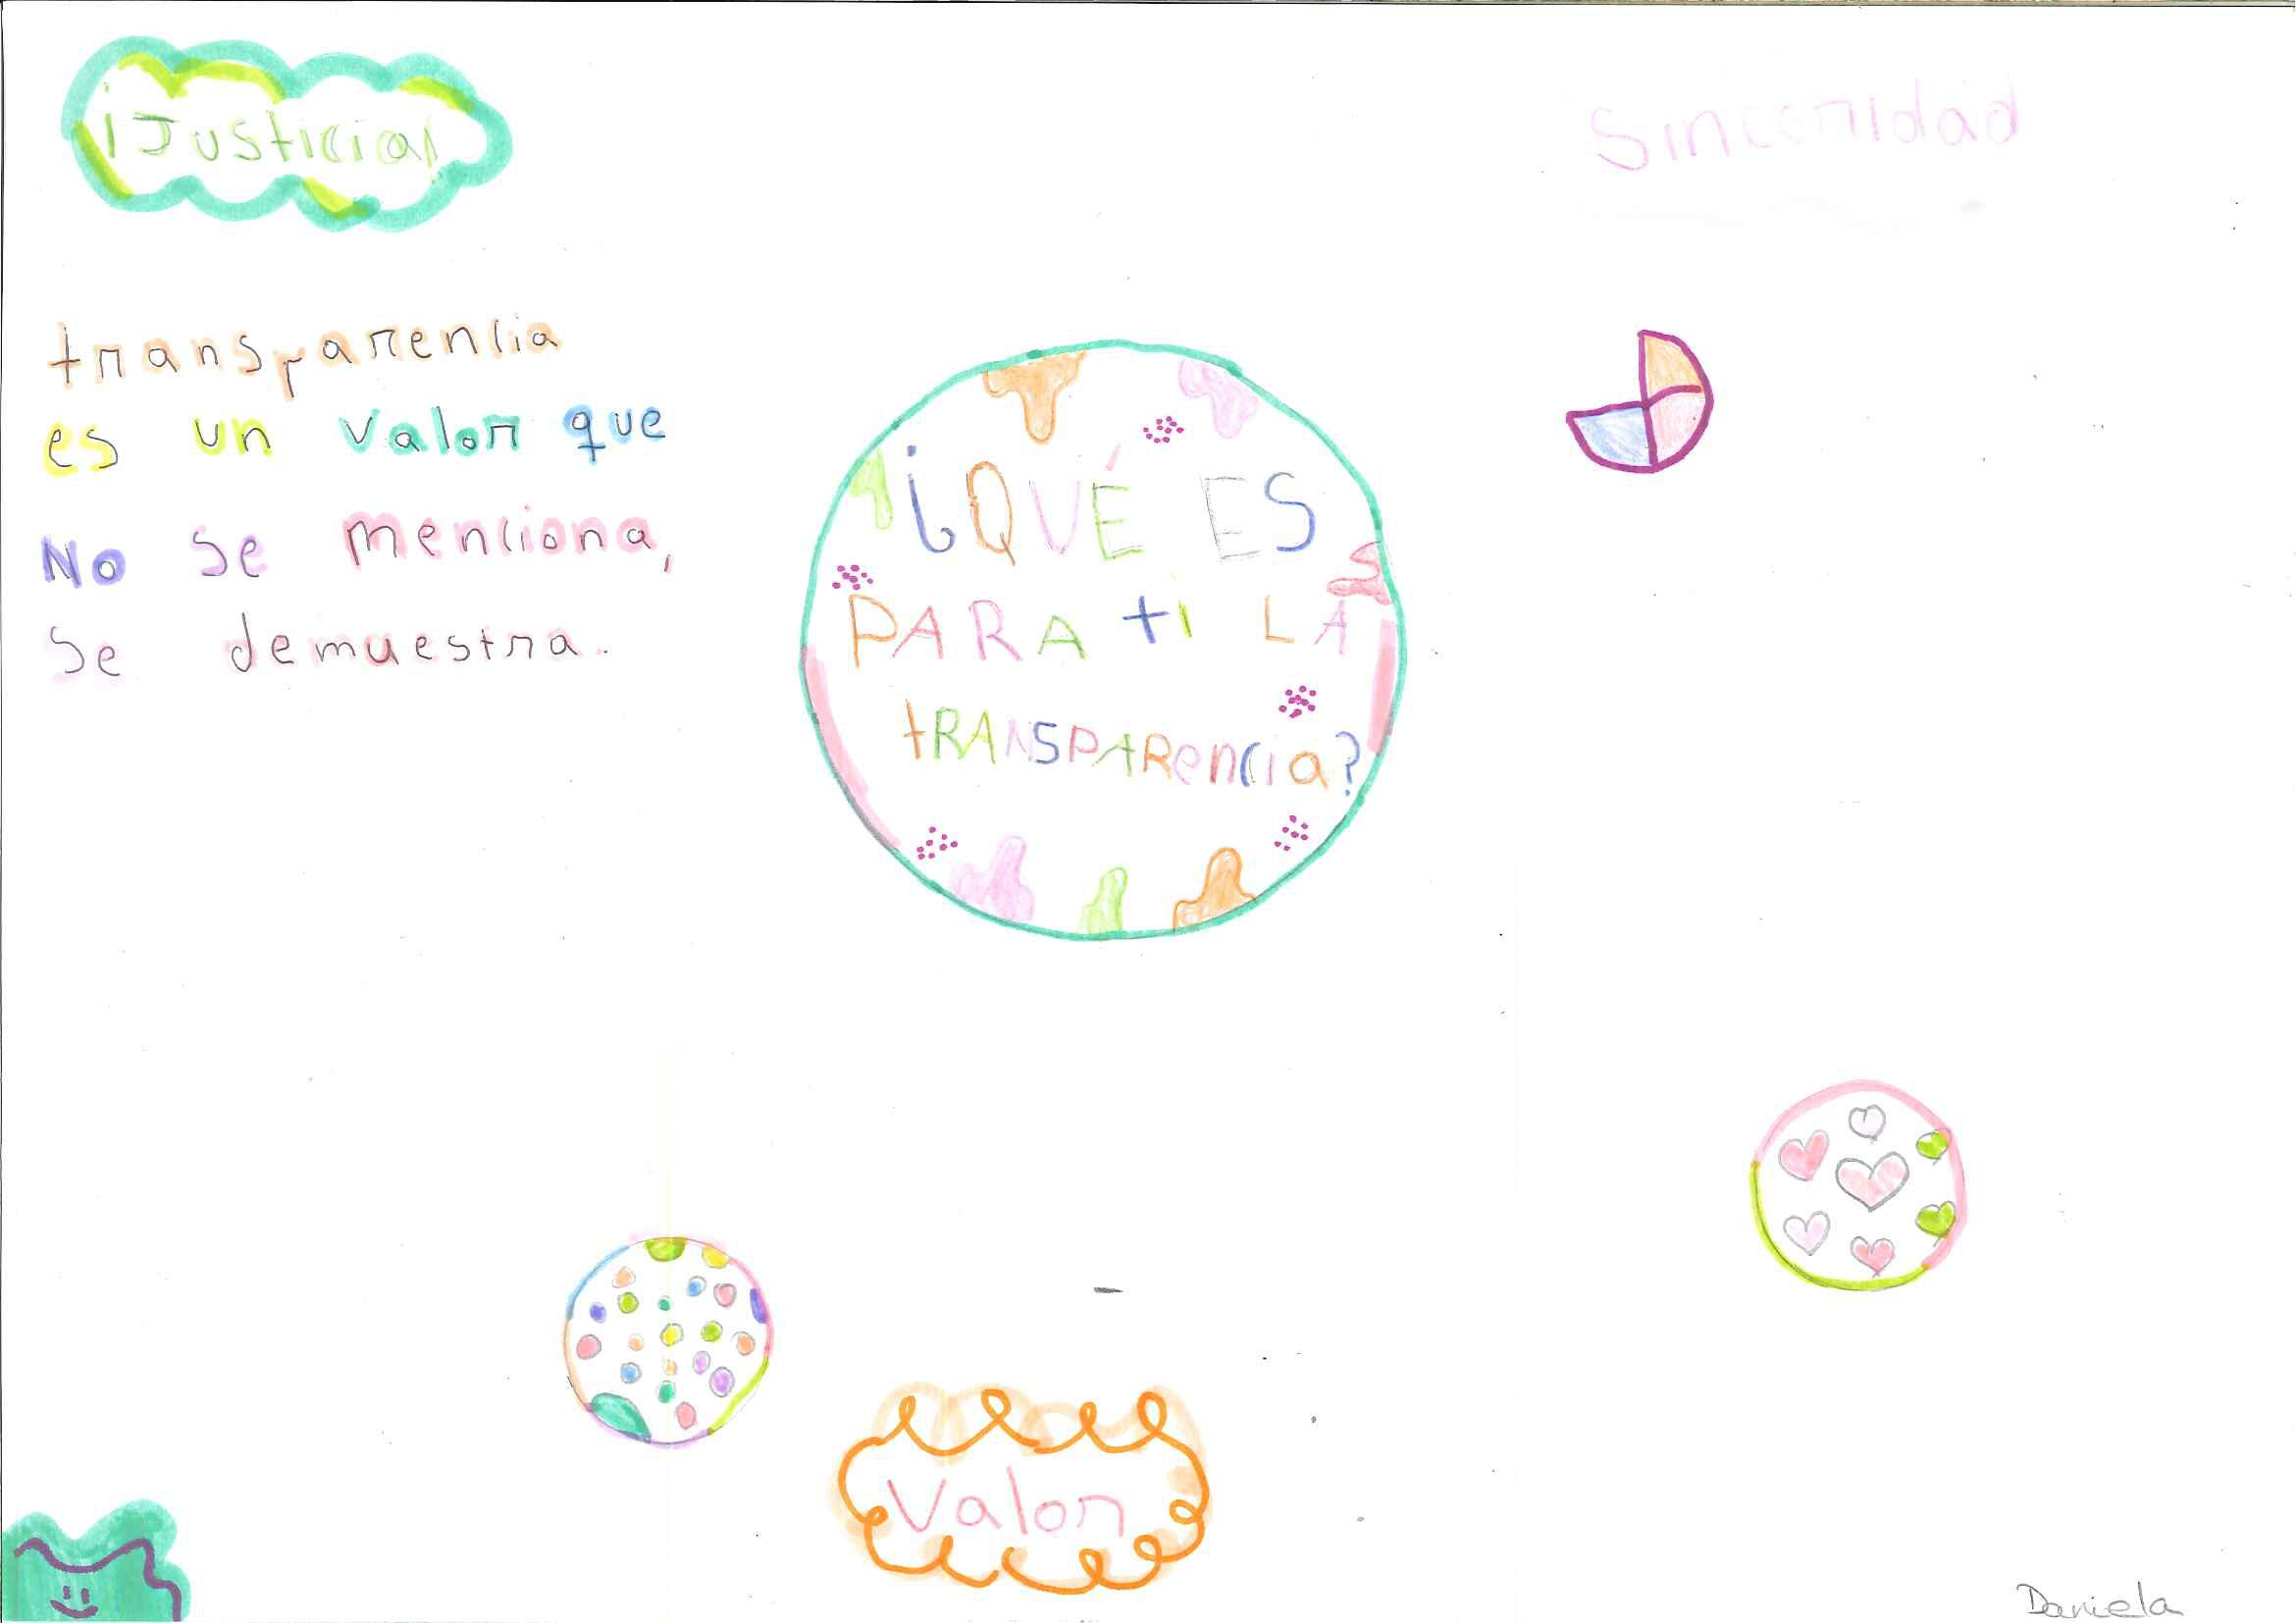 ¡Justicia!
Sinceridad
transparencia
es un valor que
No se menciona,
se demuestra.
¿QUÉ ES
PARA ti LA
tRANSPARencia?
Valor
Daniela